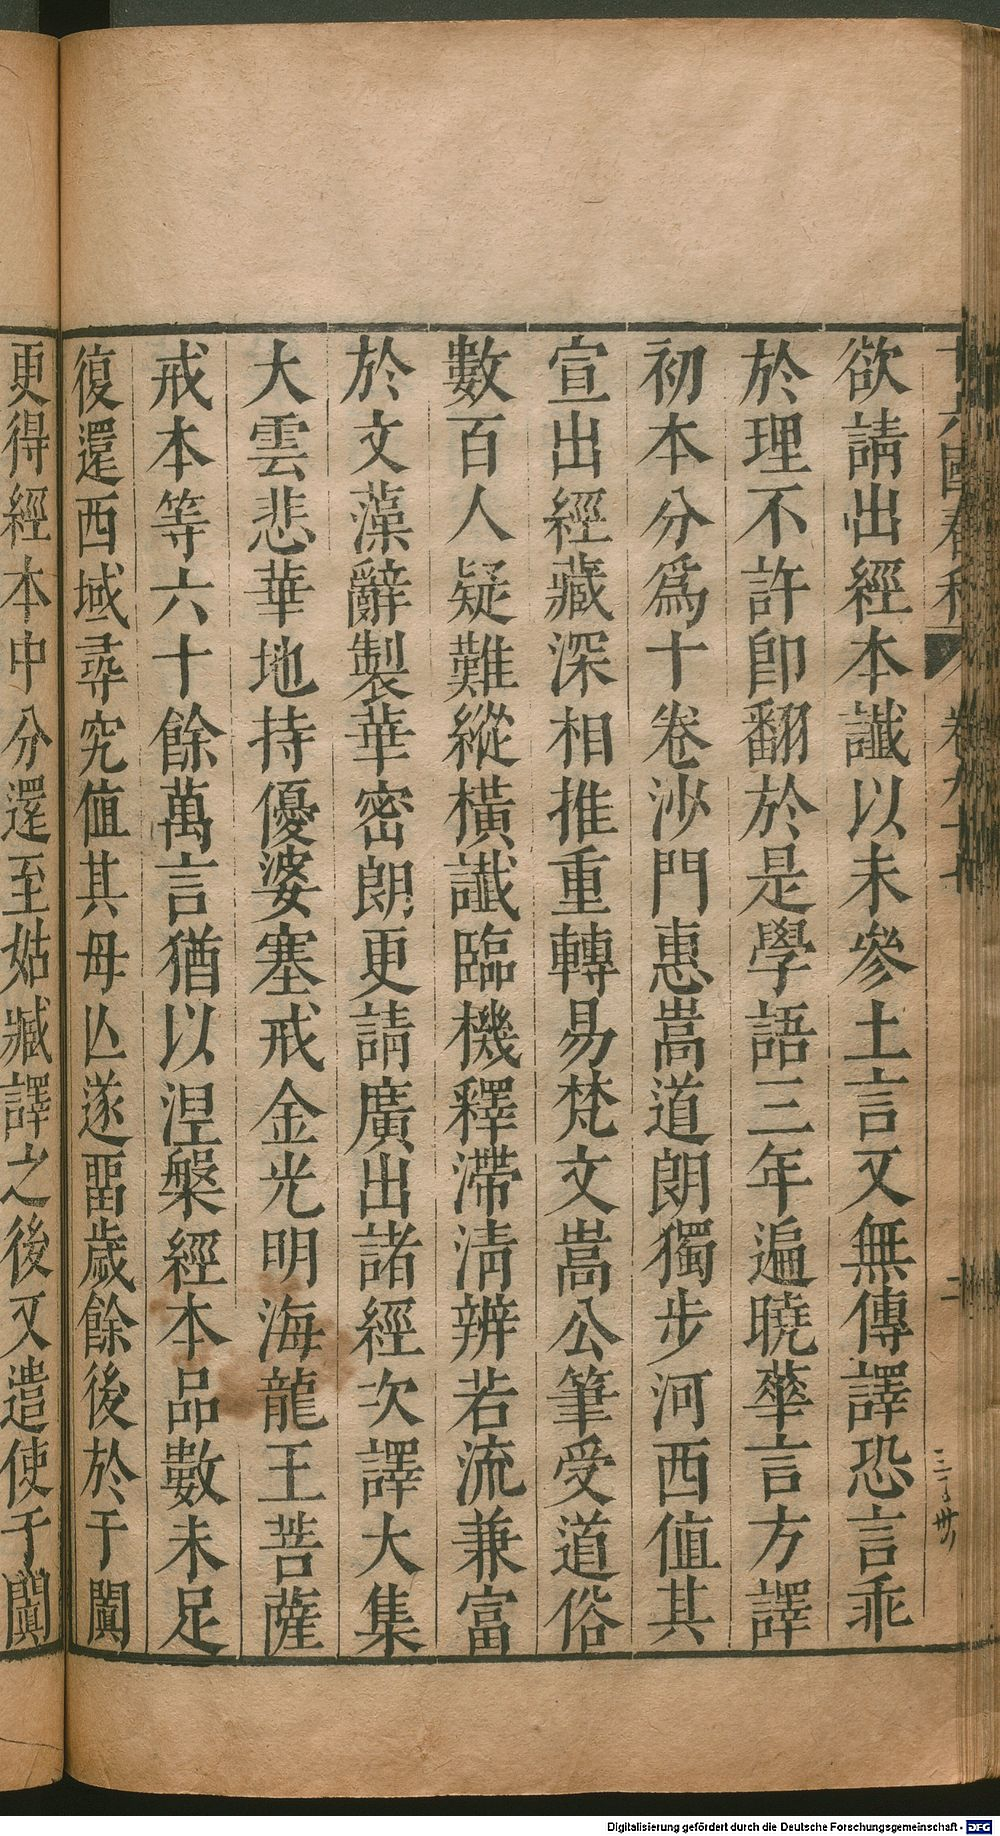 十六國春秋 卷九十七 二
欲請出經本讖以未參土言又無傳譯恐言乖
於理不許卽翻於是學語三年遍曉華言方譯
初本分爲十卷沙門惠嵩道朗獨步河西值其
宣出經藏深相推重轉易梵文嵩公筆受道俗
數百人疑難縱橫讖臨機釋滯淸辨若流兼富
於文藻辭製華密朗更請廣出諸經次譯大集
大雲悲華地持優婆塞戒金光明海龍王菩薩
戒本等六十餘萬言猶以涅槃經本品數未足
復還西域尋究值其母亾遂畱歲餘後於于闐
更得經本中分還至姑臧譯之後又遣使于闐
Digitalisierung gefördert durch die Deutsche Forschungsgemeinschaft - DFG